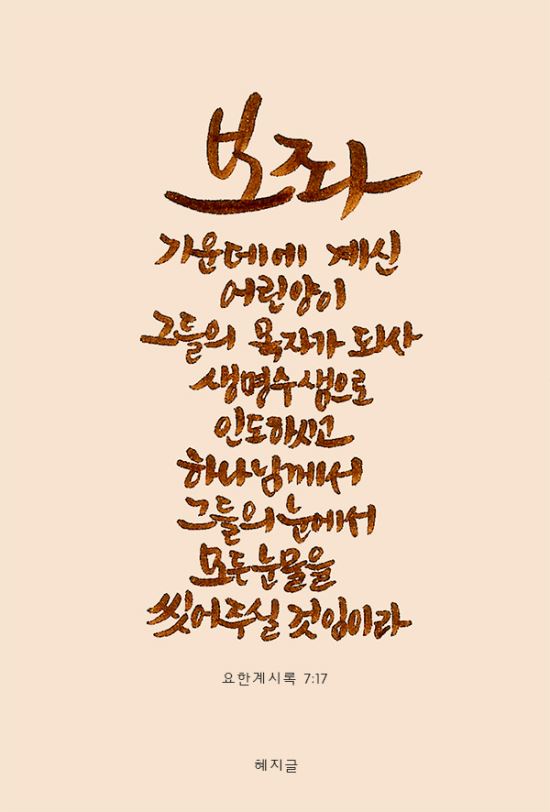 보좌
가운데에 계신
어린양이
그들의 목자가 되사
생명수 샘으로
인도하시고
하나님께서
그들의 눈에서
모든 눈물을
씻어주실 것임이라
요한계시록 7:17
혜지글